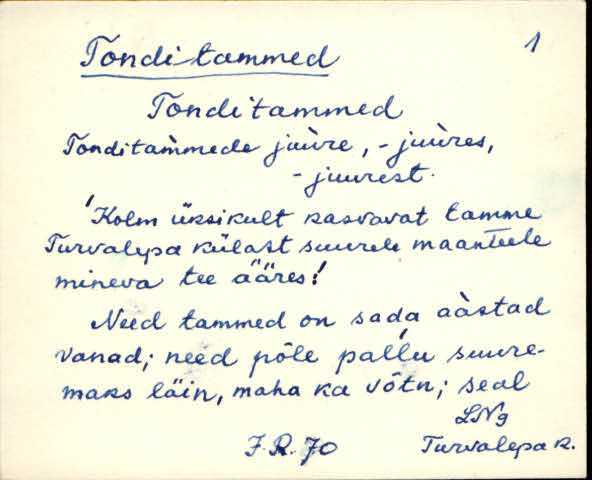 Tonditammed 1
Tonditammed
Tonditam̀mede juùre, -juùres,
-juurest.
'Kolm üksikult kasvavat tamme
Turvalepa külast suurele maanteele
mineva tee ääres!
Need tammed on sada aàstad
vanad; need põle pal'l'u suure-
maks läin, maha ka võtn; seal
LNg
J.R. 70 Turvalepa k.